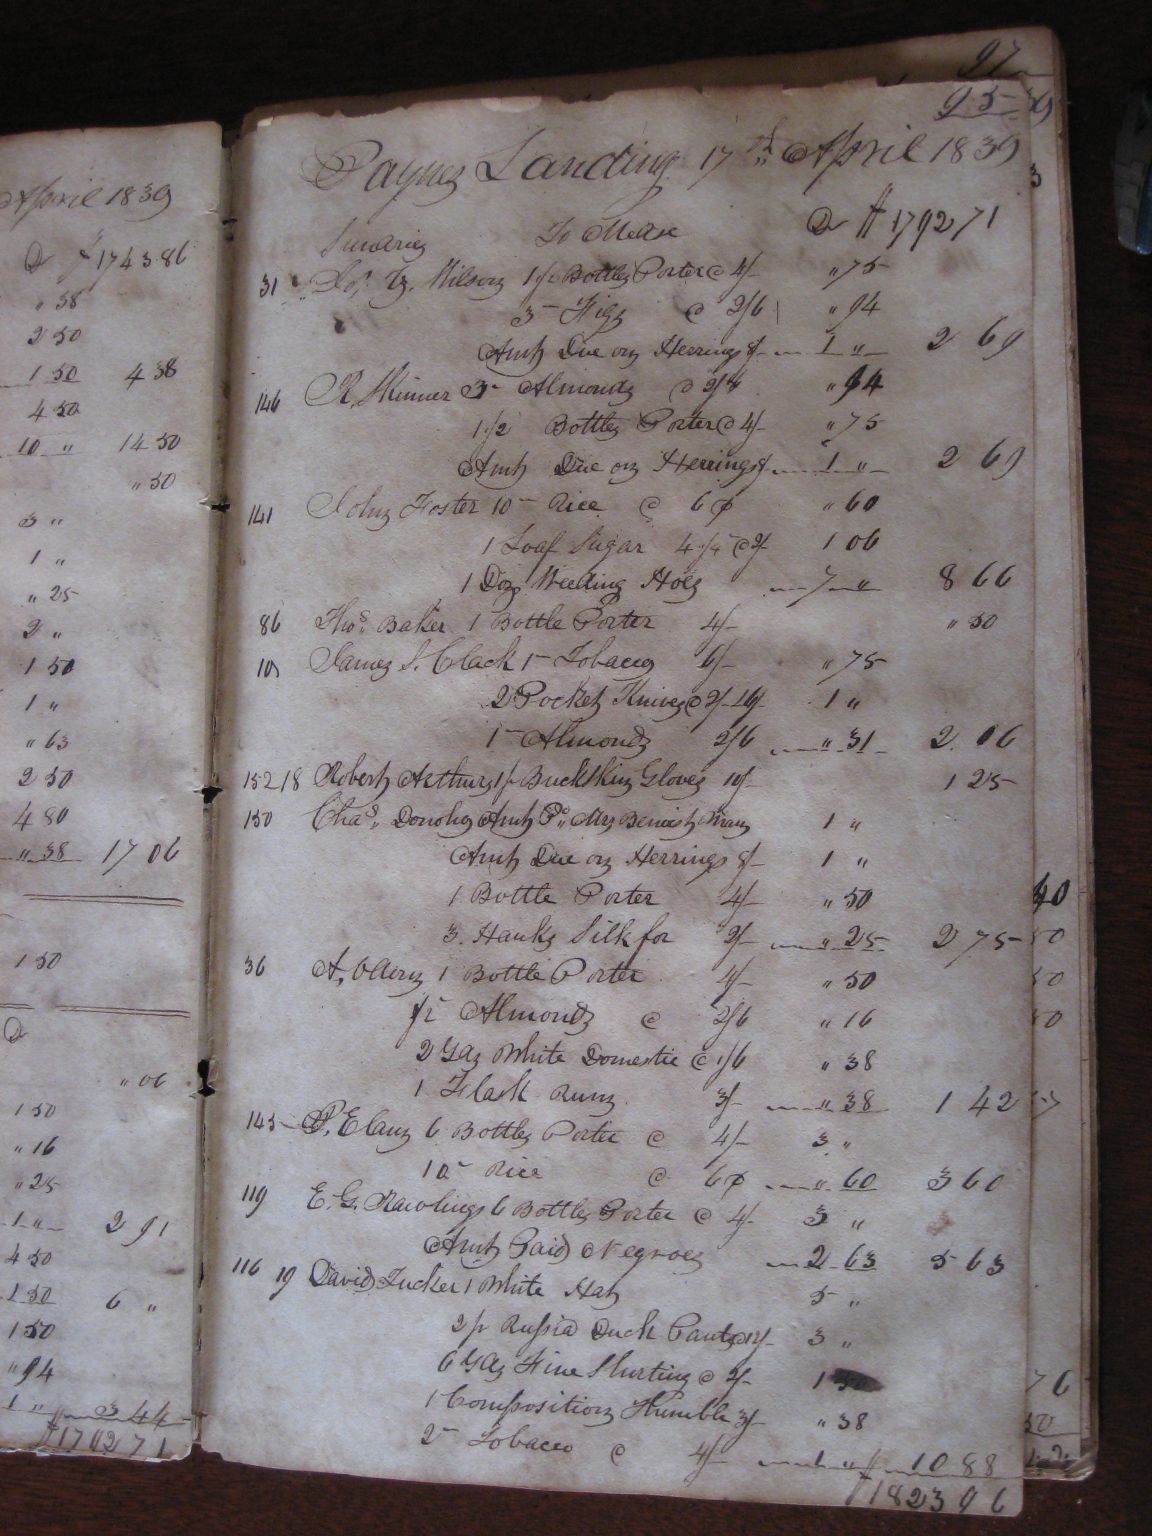 April 1839
D $1743 86
" 38
2 50
1 50 4 38
4 50
10 " 14 50
" 50
3 "
1 "
" 25
2 "
1 50
1 "
" 63
2 50
4 80
" 38 17 06
1 50
D
" 06
1 50
" 16
" 25
1 " 2 91
4 50
1 50 6 "
1 50
" 94
1 " 3 44
$1792 71
97
95
Paynes Landing 17th April 1839
Sundries To Mdse D $1792 71
31 Wilson 1 1/2 Bottles Porter @ 4/- " 75
3 - Figs @ 2/6 " 94
Amt Due on Herrings 8/- 1 " 2 69
146 R. Skinner 3 - Almonds @ 2/6 " 94
1 1/2 Bottles Porter @ 4/- " 75
Amt Due on Herrings 8/- 1 " 2 69
141 John Foster 10 - Rice @ 6 ¢ " 60
1 Loaf Sugar 4 1/4 - @ 2/- 1 06
1 Doz Weeding Hoes 7 " 8 66
86 Thos. Baker 1 Bottle Porter 4/- " 50
James S. Clack 1 - Tobacco 6/- " 75
2 Pocket Knives @ 2/- 1 "
1 - Almonds 2/6 " 31 2 06
152 18 Robert Arthurs 1 pr Buckskin Gloves 10/- 1 25
150 Chas. Donohoy Amt Pd. Mrs 1 "
Amt Due on Herrings 8/- 1 "
1 Bottle Porter 4/- " 50
3 Hanks Silk for 2/- " 25 2 75
36 A. 1 Bottle Porter 4/- " 50
1/2 Almonds @ 2/6 " 16
2 Yds White Domestic @ 1/6 " 38
1 Flask Rum 3/- " 38 1 42
145 P. Elam 6 Bottles Porter @ 4/- 3 "
10 - Rice @ 6 ¢ " 60 3 60
119 E. G. Rawlings 6 Bottles Porter @ 4/- 3 "
Amt Paid Negroes 2 63 5 63
116 19 David Tucker 1 White Hat 5 "
2 pr Russia Duck Pants @ 12/- 3 "
6 Yds Fine Shirting @ 2/- 1 50
1 Composition Thimble 3/- " 38
2 - Tobacco @ 4/- 1 " 10 88
$1823 96